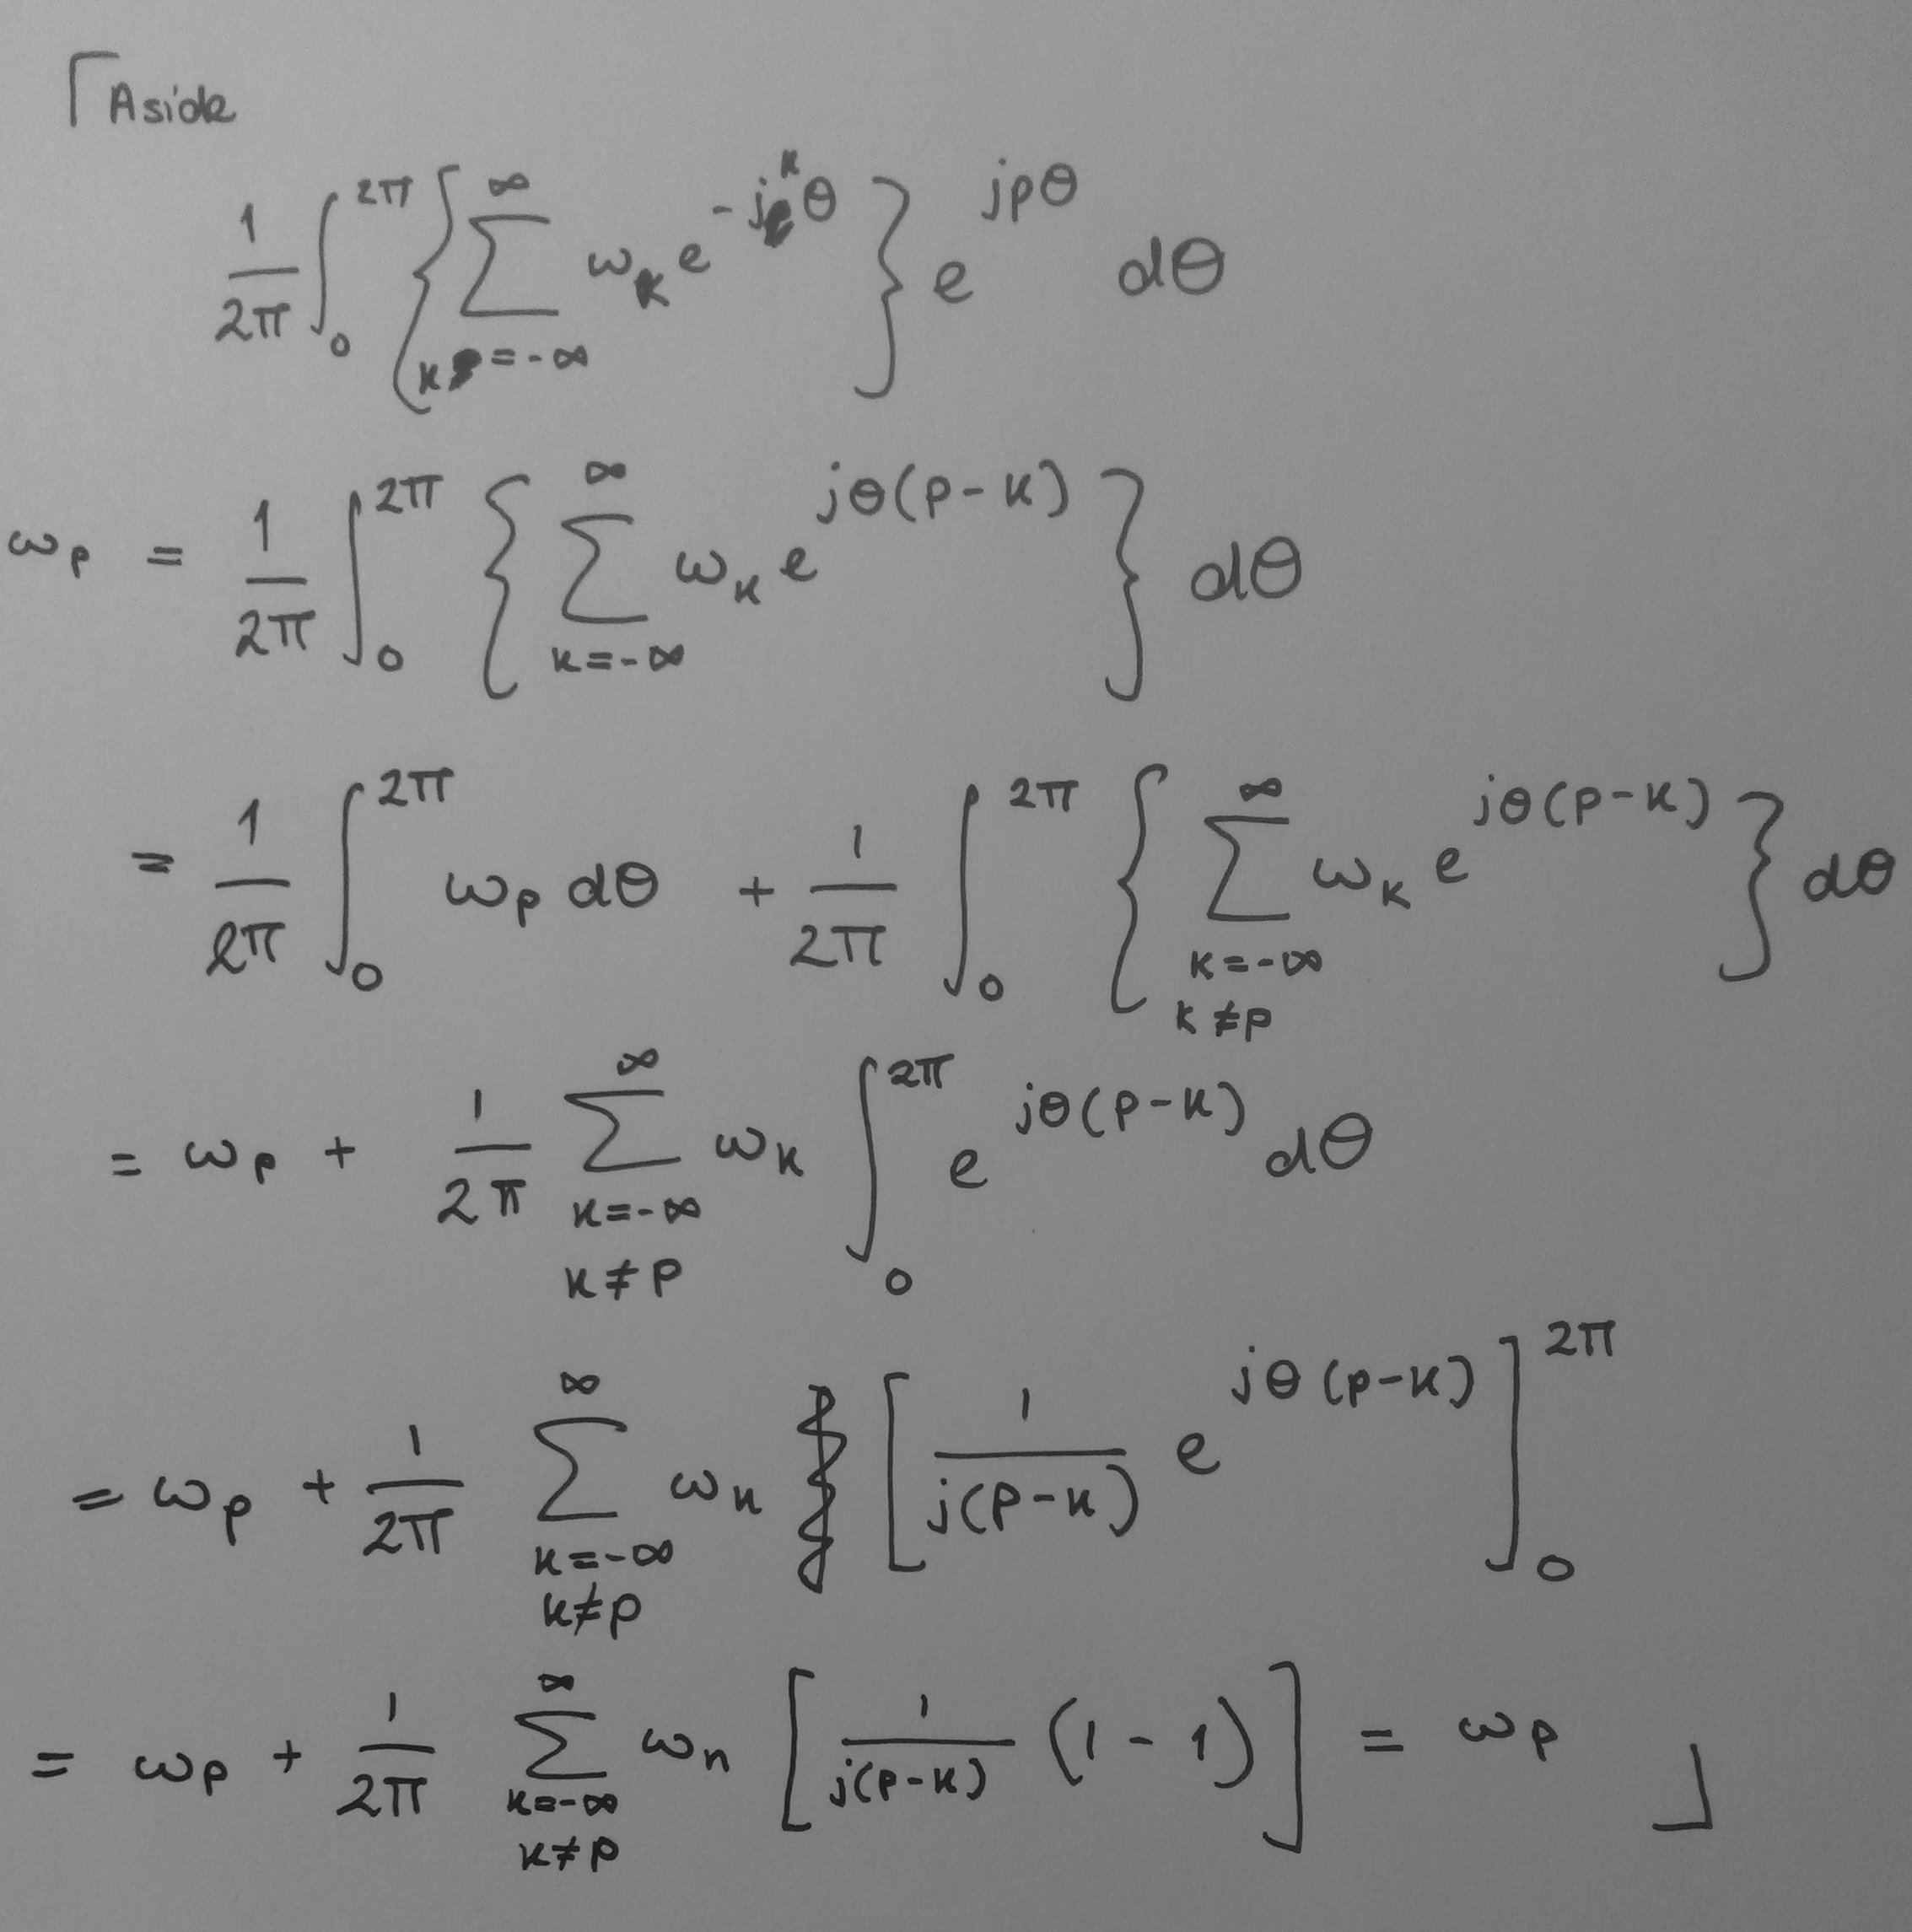 Aside
\frac{1}{2\pi} \int_0^{2\pi} \left\{ \sum_{k=-\infty}^{\infty} \omega_k e^{-jk\theta} \right\} e^{jp\theta} d\theta
\omega_p = \frac{1}{2\pi} \int_0^{2\pi} \left\{ \sum_{k=-\infty}^{\infty} \omega_k e^{j\theta(p-k)} \right\} d\theta
= \frac{1}{2\pi} \int_0^{2\pi} \omega_p d\theta + \frac{1}{2\pi} \int_0^{2\pi} \left\{ \sum_{\substack{k=-\infty \\ k \neq p}}^{\infty} \omega_k e^{j\theta(p-k)} \right\} d\theta
= \omega_p + \frac{1}{2\pi} \sum_{\substack{k=-\infty \\ k \neq p}}^{\infty} \omega_k \int_0^{2\pi} e^{j\theta(p-k)} d\theta
= \omega_p + \frac{1}{2\pi} \sum_{\substack{k=-\infty \\ k \neq p}}^{\infty} \omega_k \left[ \frac{1}{j(p-k)} e^{j\theta(p-k)} \right]_0^{2\pi}
= \omega_p + \frac{1}{2\pi} \sum_{\substack{k=-\infty \\ k \neq p}}^{\infty} \omega_n \left[ \frac{1}{j(p-k)} (1-1) \right] = \omega_p